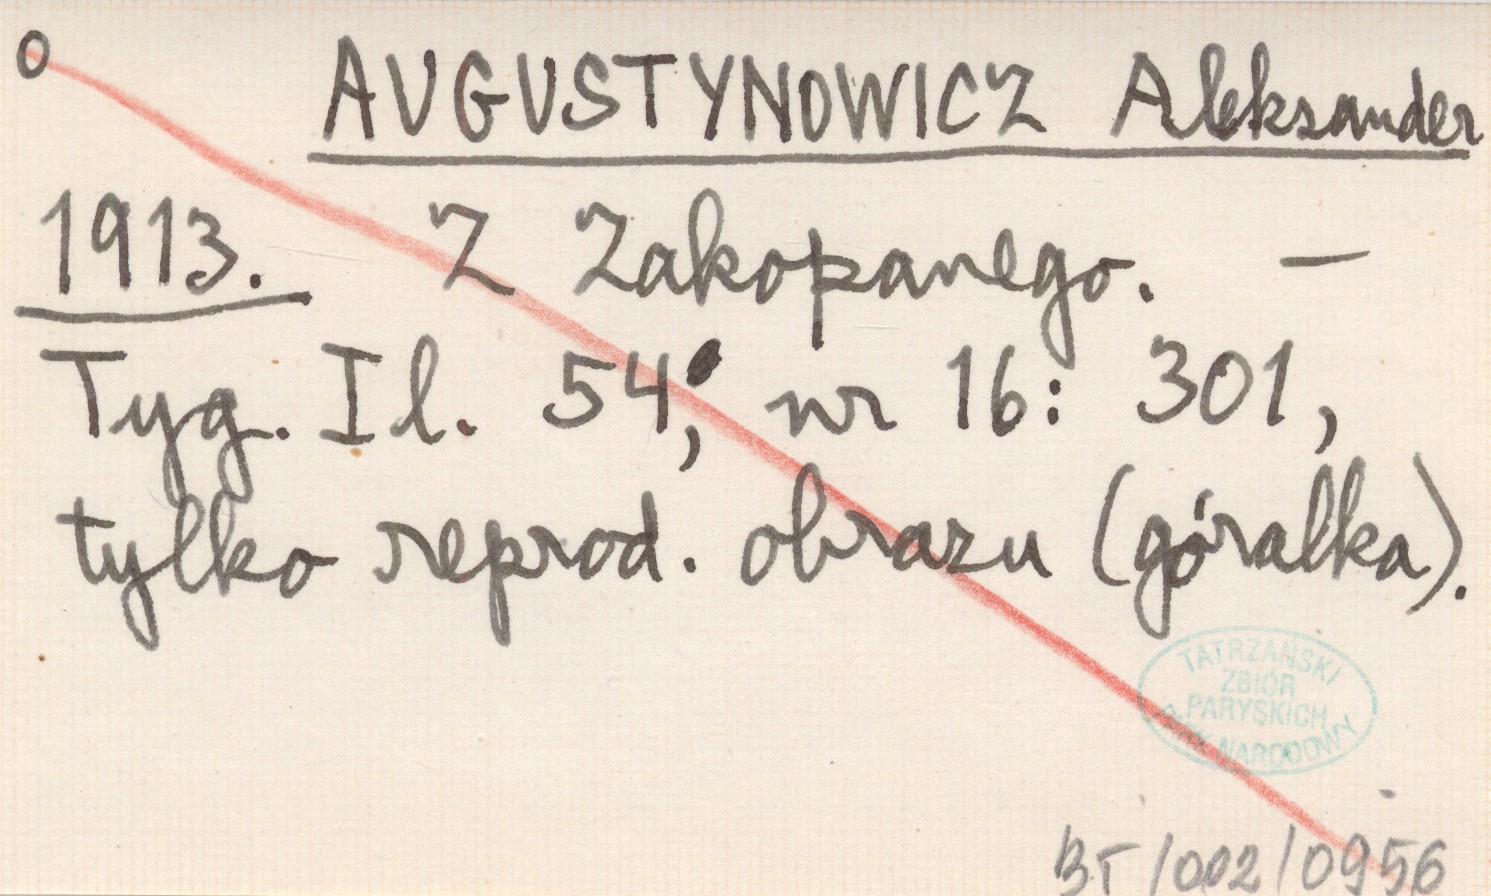 o AUGUSTYNOWICZ Aleksander
1913. Z Zakopanego. —
Tyg. Il. 54, nr 16: 301,
tylko reprod. obrazu (góralka).
TATRZAŃSKI
ZBIÓR
PARYSKICH
PARK NARODOWY
BT/002/0956